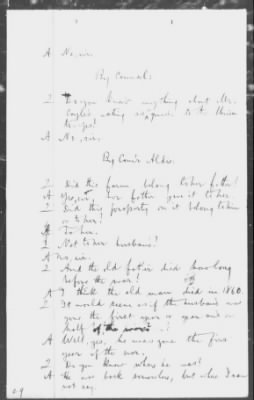 A No, sir.
By Counsel:
Q Do you know anything about Mr.
Cogle's acting as guide to the Union
troops?
A No, sir.
By Com'r Aldis.
Q Did this farm belong to her father?
A Yes, sir, her father give it to her.
Q Did this property on it belong to him
or to her?
A To her.
Q Not to her husband?
A No, sir.
Q And the old father died how long
before the war?
A I think the old man died in 1860.
Q It would seem as if the husband was
gone the first year or year and a
half of the war?
A Well, yes, he was gone the first
year of the war.
Q Do you know where he was?
A He was back somewhere, but where I can
not say.